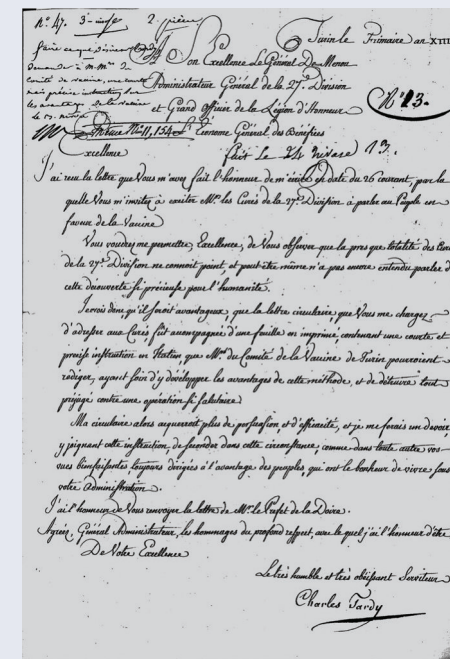 N.º 47. 3-
2. pièces
Turin le Frimaire an XIII
Son Excellence Le Général De Menou
Administrateur Général de la 27.e Division
et Grand Officier de la Légion d'Honneur
N.º 13.
demande à M.rs
comité de vaccine, une
précise instruction sur
les avantages de la vaccine
le 13. nivose
N.º 11,154
L'Econome Général des Bénéfices
fait le 24 nivose 13.
Excellence
J'ai recu la lettre que Vous m'avez fait l'honneur de m'écrire en date du 26 courant, par la
quelle Vous m'invitez à exciter M.rs les Curés de la 27.e Division à parler au Peuple en
faveur de la Vaccine
Vous voudrez me permettre, Excellence, de Vous observer que la presque totalité des Curés
de la 27.e Division ne connoit point, et peut être même n'a pas encore entendu parler de
cette découverte si précieuse pour l'humanité.
Je crois donc qu'il seroit avantageux, que la lettre circulaire, que Vous me chargez
d'adresser aux Curés fût accompagnée d'une feuille en imprimé contenant une courte et
précise instruction en Italien que M.rs du Comité de la Vaccine de Turin pourroient
rédiger, ayant soin d'y développer les avantages de cette méthode, et de détruire tout
préjugé contre une opération si salutaire
Ma circulaire alors acquerroit plus de persuasion et d'efficacité, et je me ferais un devoir,
y joignant cette instruction, de seconder dans cette circonstance, comme dans toute autre vos
vues bienfaisantes toujours dirigées à l'avantage des peuples, qui ont le bonheur de vivre sous
votre Administration
J'ai l'honneur de Vous renvoyer la lettre de M.r le Préfet de la Doire.
Agréez, Général Administrateur, les hommages du profond respect, avec le quel j'ai l'honneur d'être
De Votre Excellence
Le très humble et très obéissant Serviteur
Charles Tardy